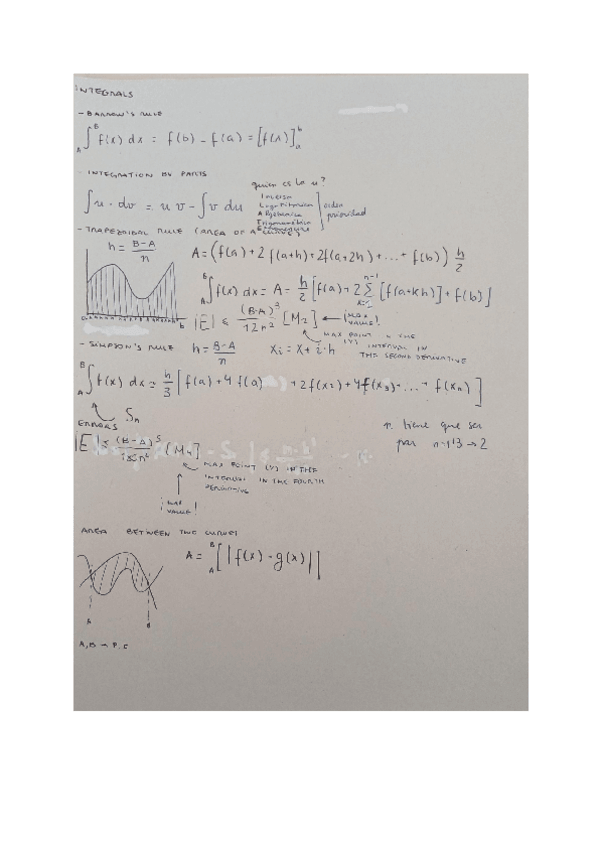 INTEGRALS
- BARROW'S RULE
∫_A^B f(x) dx = f(b) - f(a) = [f(x)]_a^b
- INTEGRATION BY PARTS
quien es la u?
∫u · dv = u v - ∫v du
Inversa
Logarítmica
Algebraica
Trigonométrica
orden
prioridad
- TRAPEZOIDAL RULE (AREA OF A CURVE)
h = B-A/n
A = (f(a) + 2 f(a+h) + 2f(a+2h) + ... + f(b)) h/2
∫_A^B f(x) dx = A = h/2 [f(a) + 2 Σ^{n-1} [f(a+kh)] + f(b)]
|E| ≤ (B-A)^3/12n^2 [M2] ← ¡MAX VALUE!
MAX POINT IN THE
(Y) INTERVAL IN
THE SECOND DERIVATIVE
- SIMPSON'S RULE h = B-A/n xi = x + i·h
∫_A^B f(x) dx = h/3 [f(a) + 4 f(a) + 2f(x2) + 4f(x3) + ... + f(xn)]
Sn
n tiene que ser
par n=1'3 → 2
ERRORS
|E| ≤ (B-A)^5 [M4]
MAX POINT (Y) IN THE
INTERVAL IN THE FOURTH
DERIVATIVE
¡MAX
VALUE!
AREA BETWEEN THE CURVES
A = _A^B [|f(x) - g(x)|]
A
B
A, B → P.C